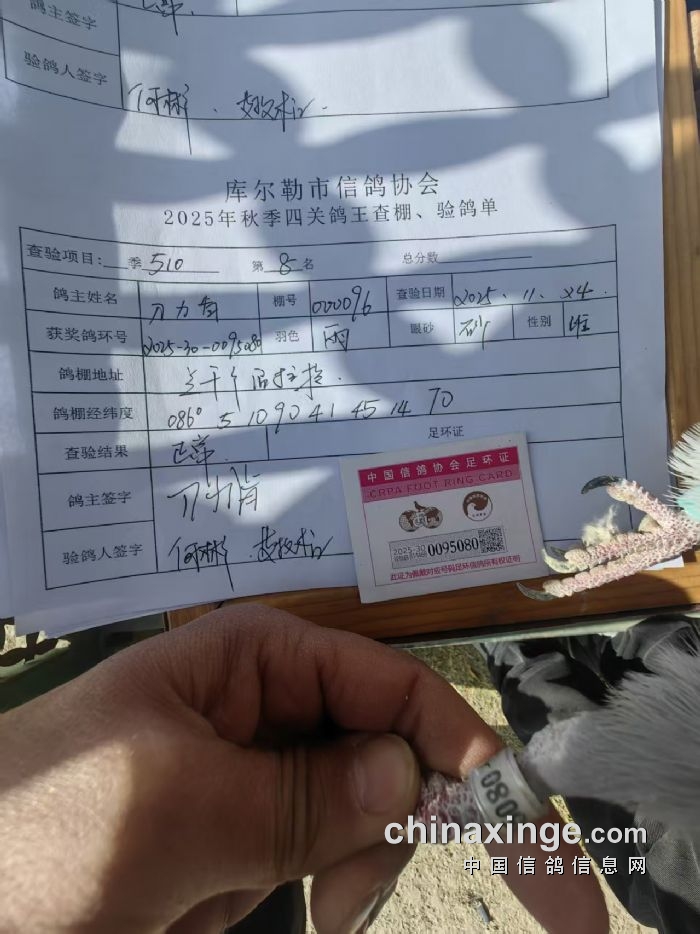 鸽主签字
验鸽人签字
何彬
库尔勒市信鸽协会
2025年秋季四关鸽王查棚、验鸽单
查验项目: 季 510 第 8 名 总分数
鸽主姓名 刀力肯 棚号 000096 查验日期 2025.11.24.
获奖鸽环号 2025-30-0095080 羽色 雨 眼砂 砂 性别 雄
鸽棚地址
鸽棚经纬度 086° 5 10 90 41 45 14 70
查验结果 正常. 足环证
鸽主签字 刀力肯
验鸽人签字 何彬
中国信鸽协会足环证
CRPA FOOT RING CARD
2025-30
0095080
此证为佩戴对应号码足环信鸽所有权证明
080
chinaxinge.com
中国信鸽信息网